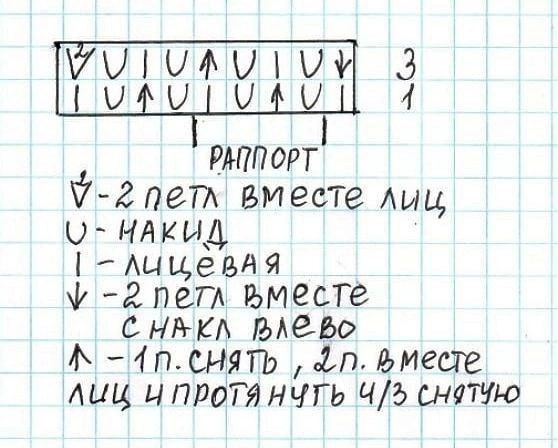 2∇ U | U ↑ U | U ↓ 3
| U ↑ U | U ↑ U | 1
РАППОРТ
2∇ - 2 ПЕТЛ ВМЕСТЕ ЛИЦ
U - НАКИД
| - ЛИЦЁВАЯ
↓ - 2 ПЕТЛ ВМЕСТЕ
С НАКЛ ВЛЕВО
↑ - 1 П. СНЯТЬ, 2 П. ВМЕСТЕ
ЛИЦ И ПРОТЯНУТЬ Ч/З СНЯТУЮ